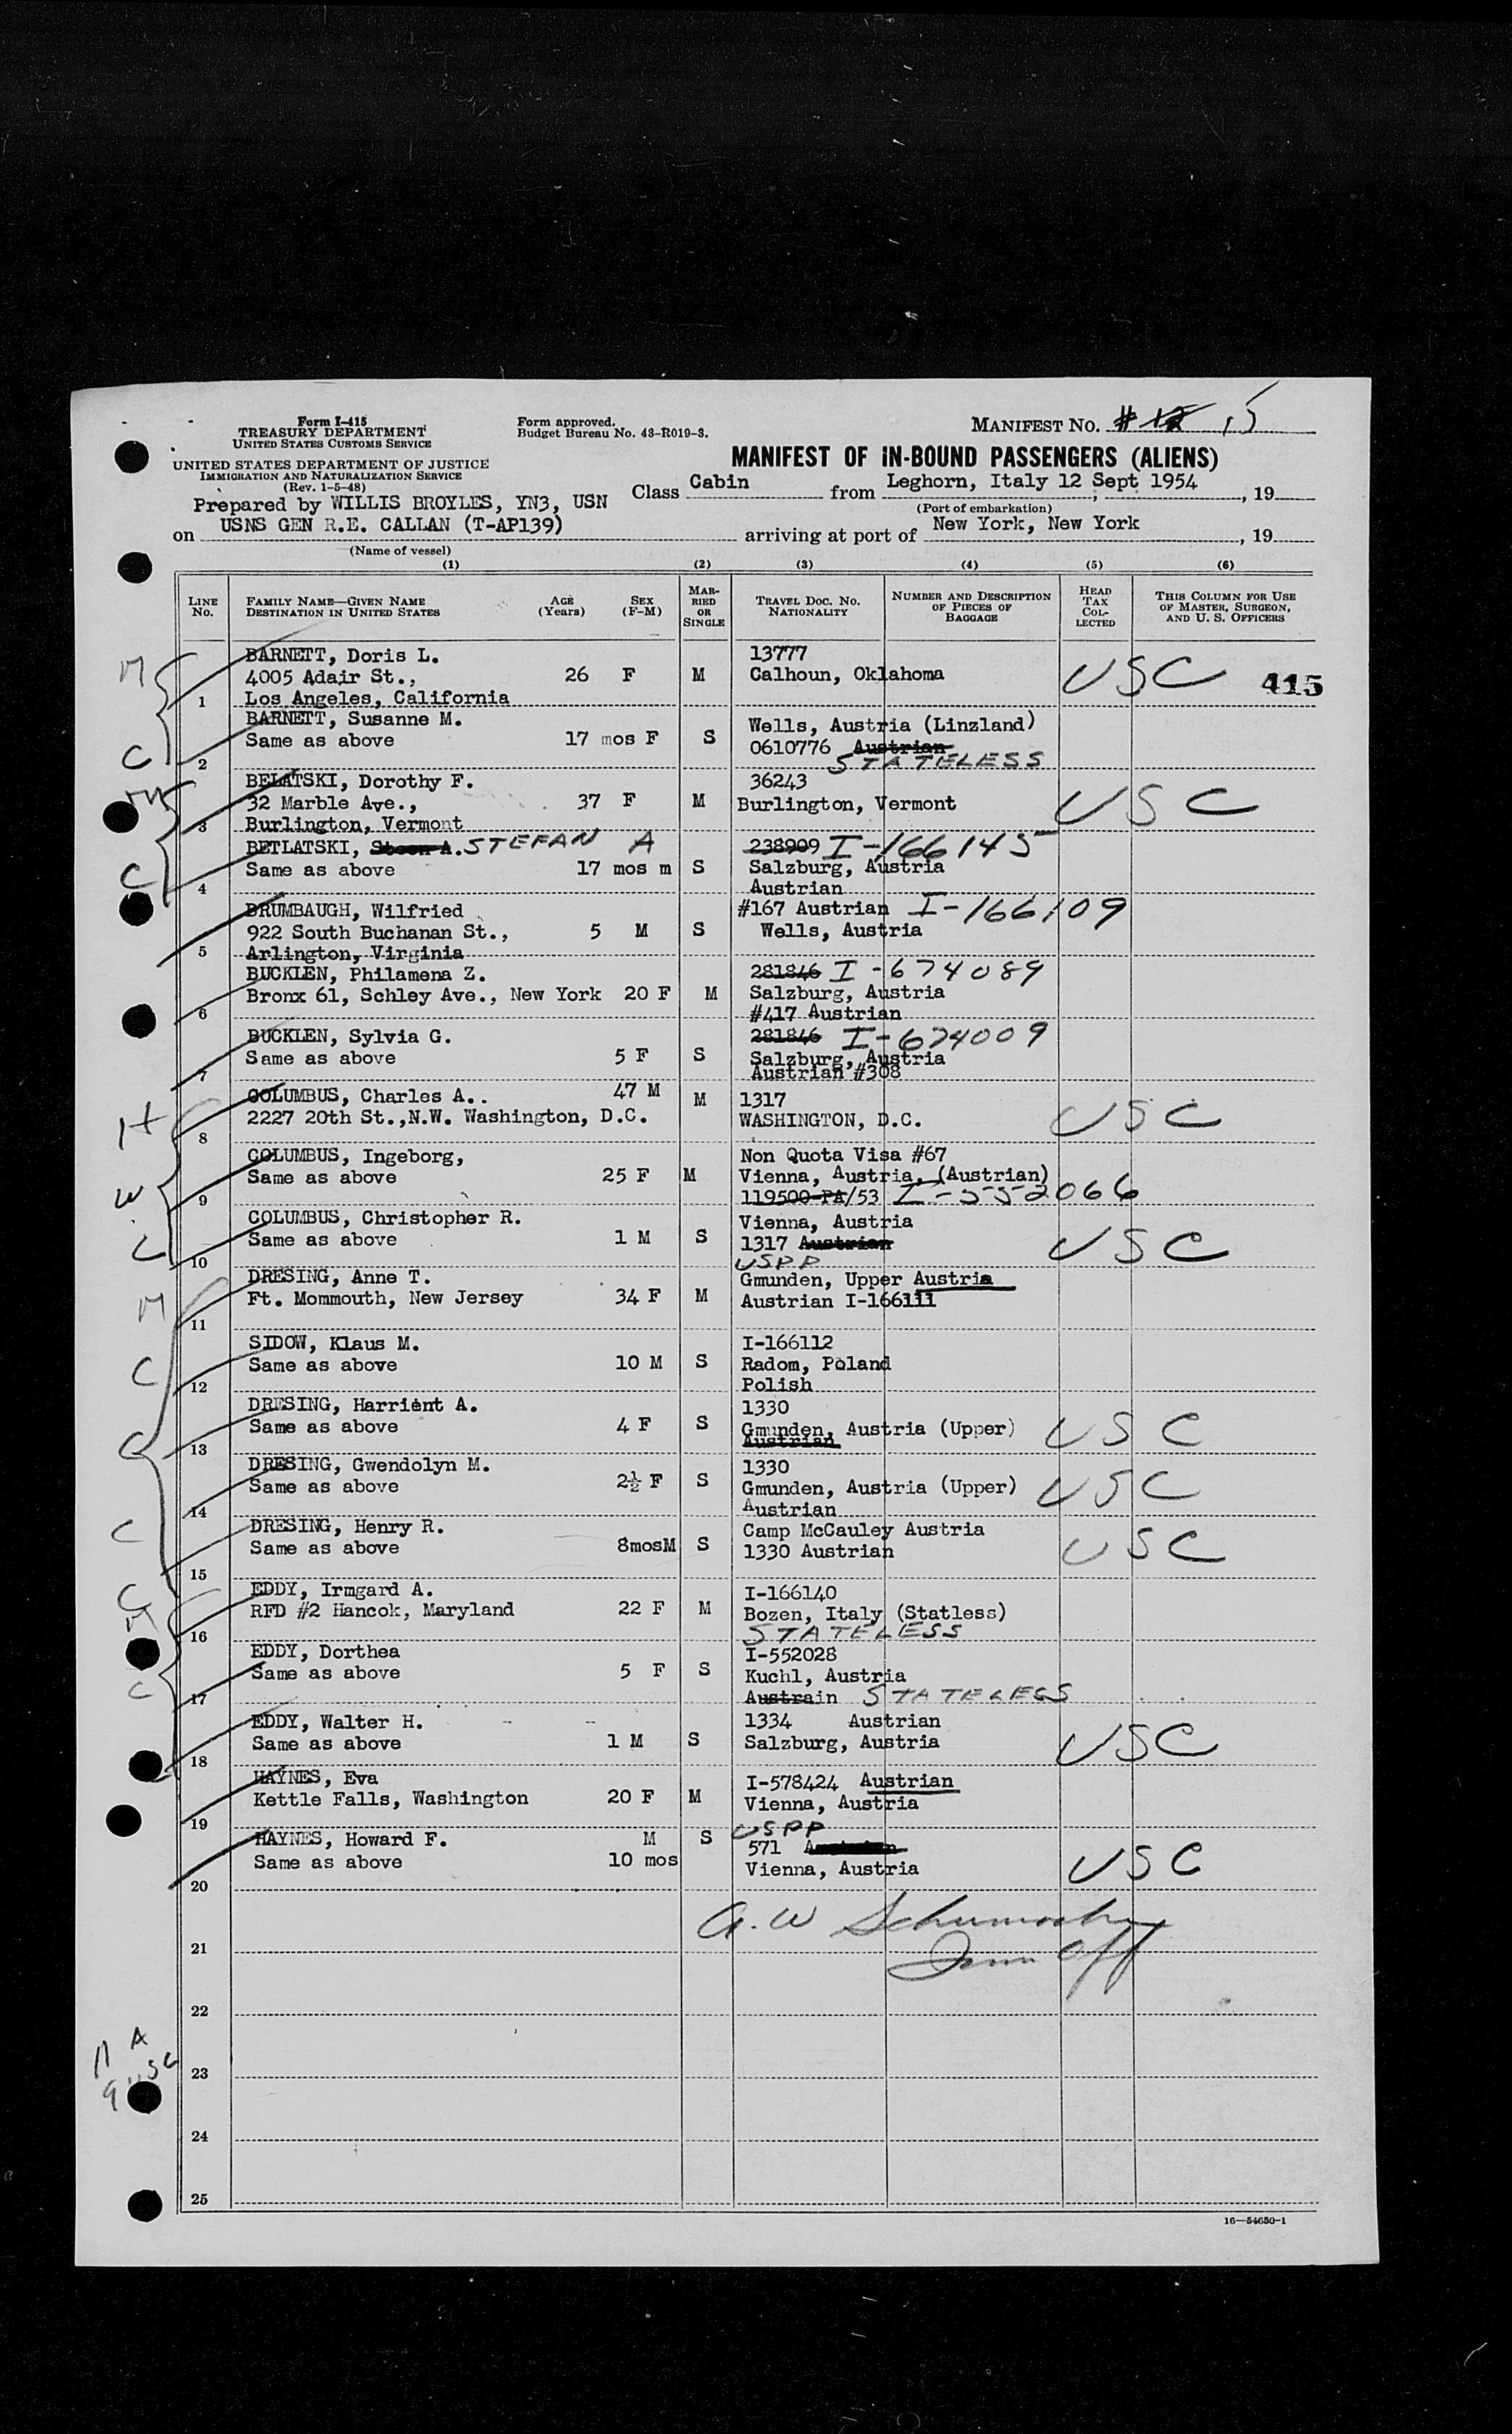 Form I-415
TREASURY DEPARTMENT
UNITED STATES CUSTOMS SERVICE
Form approved.
Budget Bureau No. 43-R019-3.
MANIFEST NO. # 12 15
UNITED STATES DEPARTMENT OF JUSTICE
IMMIGRATION AND NATURALIZATION SERVICE
(Rev. 1-5-48)
MANIFEST OF IN-BOUND PASSENGERS (ALIENS)
Prepared by WILLIS BROYLES, YN3, USN
Class Cabin from Leghorn, Italy 12 Sept 1954, 19
(Port of embarkation)
on USNS GEN R.E. CALLAN (T-AP139) arriving at port of New York, New York, 19
(Name of vessel)
(1) (2) (3) (4) (5) (6)
LINE No. FAMILY NAME—GIVEN NAME DESTINATION IN UNITED STATES AGE (Years) SEX (F-M) MARRIED OR SINGLE TRAVEL DOC. NO. NATIONALITY NUMBER AND DESCRIPTION OF PIECES OF BAGGAGE HEAD TAX COLLECTED THIS COLUMN FOR USE OF MASTER, SURGEON, AND U. S. OFFICERS
M BARNETT, Doris L. 13777
4005 Adair St., 26 F M Calhoun, Oklahoma USC 415
1 Los Angeles, California
BARNETT, Susanne M. Wells, Austria (Linzland)
C Same as above 17 mos F S 0610776 Austrian
2 STATELESS
M BELATSKI, Dorothy F. 36243
32 Marble Ave., 37 F M Burlington, Vermont USC
3 Burlington, Vermont
BETLATSKI, Steen A. STEFAN A 238909 I-166145
C Same as above 17 mos m S Salzburg, Austria
4 Austrian
BRUMBAUGH, Wilfried #167 Austrian I-166109
922 South Buchanan St., 5 M S Wells, Austria
5 Arlington, Virginia
BUCKLEN, Philamena Z. 281846 I-674089
Bronx 61, Schley Ave., New York 20 F M Salzburg, Austria
6 #417 Austrian
BUCKLEN, Sylvia G. 281846 I-674009
Same as above 5 F S Salzburg, Austria
7 Austrian #308
COLUMBUS, Charles A.. 47 M M 1317
H 2227 20th St.,N.W. Washington, D.C. WASHINGTON, D.C. USC
8
COLUMBUS, Ingeborg, Non Quota Visa #67
W Same as above 25 F M Vienna, Austria, (Austrian)
9 119500-PA/53 I-552066
COLUMBUS, Christopher R. Vienna, Austria
C Same as above 1 M S 1317 Austrian USC
10 USPP
M DRESING, Anne T. Gmunden, Upper Austria
Ft. Mommouth, New Jersey 34 F M Austrian I-166111
11
SIDOW, Klaus M. I-166112
C Same as above 10 M S Radom, Poland
12 Polish
DRESING, Harrient A. 1330
C Same as above 4 F S Gmunden, Austria (Upper) USC
13 Austrian
DRESING, Gwendolyn M. 1330
Same as above 2½ F S Gmunden, Austria (Upper) USC
14 Austrian
C DRESING, Henry R. Camp McCauley Austria
Same as above 8mosM S 1330 Austrian USC
15
C EDDY, Irmgard A. I-166140
M RFD #2 Hancok, Maryland 22 F M Bozen, Italy (Statless)
16 STATELESS
EDDY, Dorthea I-552028
C Same as above 5 F S Kuchl, Austria
17 Austrain STATELESS
EDDY, Walter H. 1334 Austrian
Same as above 1 M S Salzburg, Austria USC
18
HAYNES, Eva I-578424 Austrian
Kettle Falls, Washington 20 F M Vienna, Austria
19 USPP
HAYNES, Howard F. M S 571
Same as above 10 mos Vienna, Austria USC
20
G. W
21 Imm Off
22
11 A
9 USC 23
24
25
16—54650-1